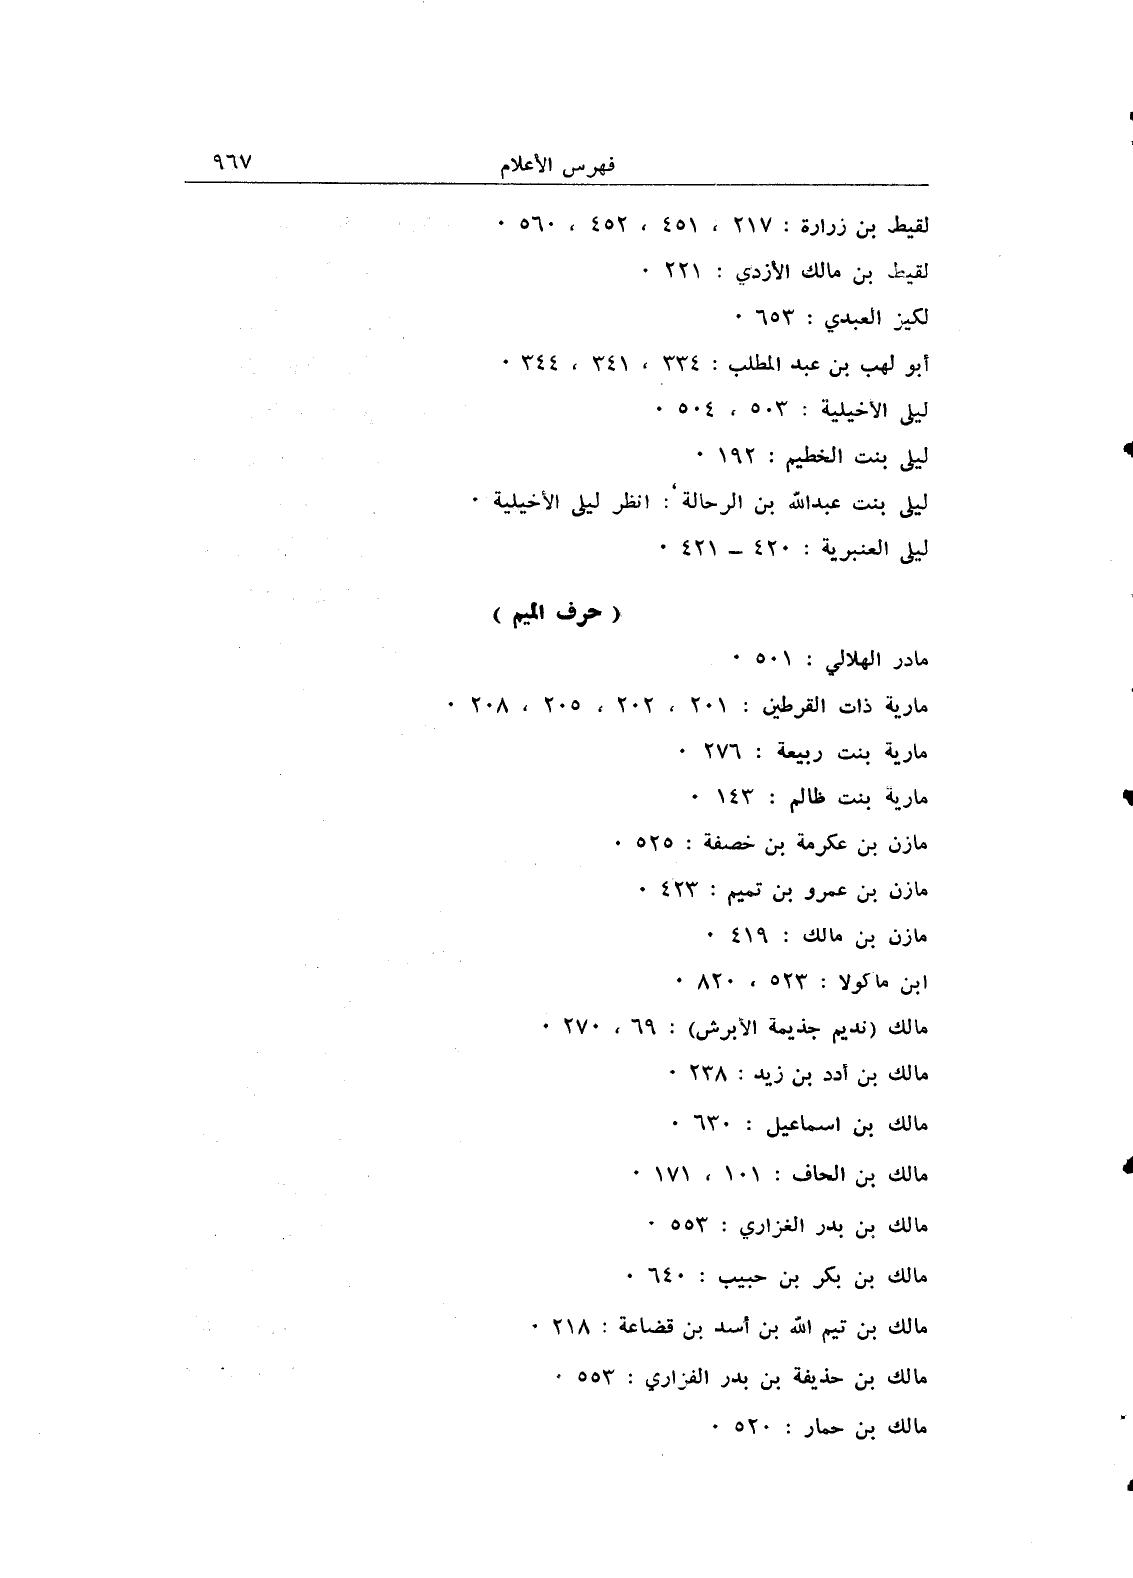 فهرس الأعلام ٩٦٧
لقيط بن زرارة : ٢١٧ ، ٤٥١ ، ٤٥٢ ، ٥٦٠ ٠
لقيط بن مالك الأزدي : ٢٢١ ٠
لكيز العبدي : ٦٥٣ ٠
أبو لهب بن عبد المطلب : ٣٣٤ ، ٣٤١ ، ٣٤٤ ٠
ليلى الأخيلية : ٥٠٣ ، ٥٠٤ ٠
ليلى بنت الخطيم : ١٩٢ ٠
ليلى بنت عبدالله بن الرحالة : انظر ليلى الأخيلية ٠
ليلى العنبرية : ٤٢٠ ــ ٤٢١ ٠
( حرف الميم )
مادر الهلالي : ٥٠١ ٠
مارية ذات القرطين : ٢٠١ ، ٢٠٢ ، ٢٠٥ ، ٢٠٨ ٠
مارية بنت ربيعة : ٢٧٦ ٠
مارية بنت ظالم : ١٤٣ ٠
مازن بن عكرمة بن خصفة : ٥٢٥ ٠
مازن بن عمرو بن تميم : ٤٢٣ ٠
مازن بن مالك : ٤١٩ ٠
ابن ماكولا : ٥٢٣ ، ٨٢٠ ٠
مالك (نديم جذيمة الأبرش) : ٦٩ ، ٢٧٠ ٠
مالك بن أدد بن زيد : ٢٣٨ ٠
مالك بن اسماعيل : ٦٣٠ ٠
مالك بن الحاف : ١٠١ ، ١٧١ ٠
مالك بن بدر الغزاري : ٥٥٣ ٠
مالك بن بكر بن حبيب : ٦٤٠ ٠
مالك بن تيم الله بن أسد بن قضاعة : ٢١٨ ٠
مالك بن حذيفة بن بدر الفزاري : ٥٥٣ ٠
مالك بن حمار : ٥٢٠ ٠